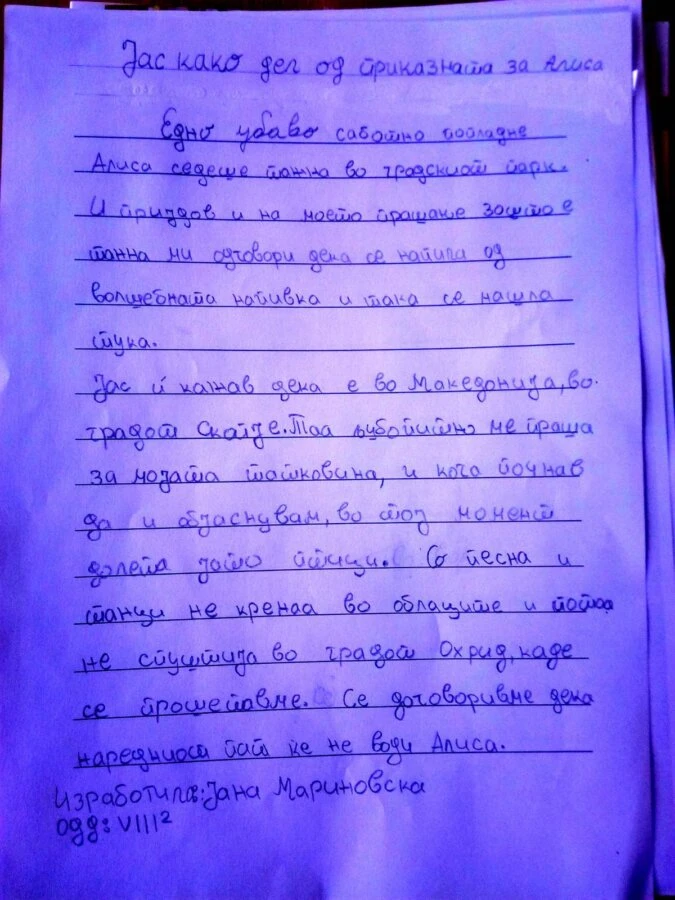 Јас како дел од приказната за Алиса
Едно убаво сабошно попладне
Алиса седеше тажна во градскиот парк.
И пријдов и на моето прашање зошто е
танна ми одговори дека се напила од
волшебната напивка и така се нашла
тука.
Јас ѝ кажав дека е во Македонија, во
градот Скопје. Таа љубопитно ме праша
за мојата татковина, и кога почнав
да и објаснувам, во тој момент
долета јато птици. Со песна и
танци не кренаа во облаците и потоа
не спуштија во градот Охрид, каде
се прошетавме. Се договоривме дека
наредниот пат ќе не води Алиса.
Изработила: Јана Мариновска
Одд: VIII²